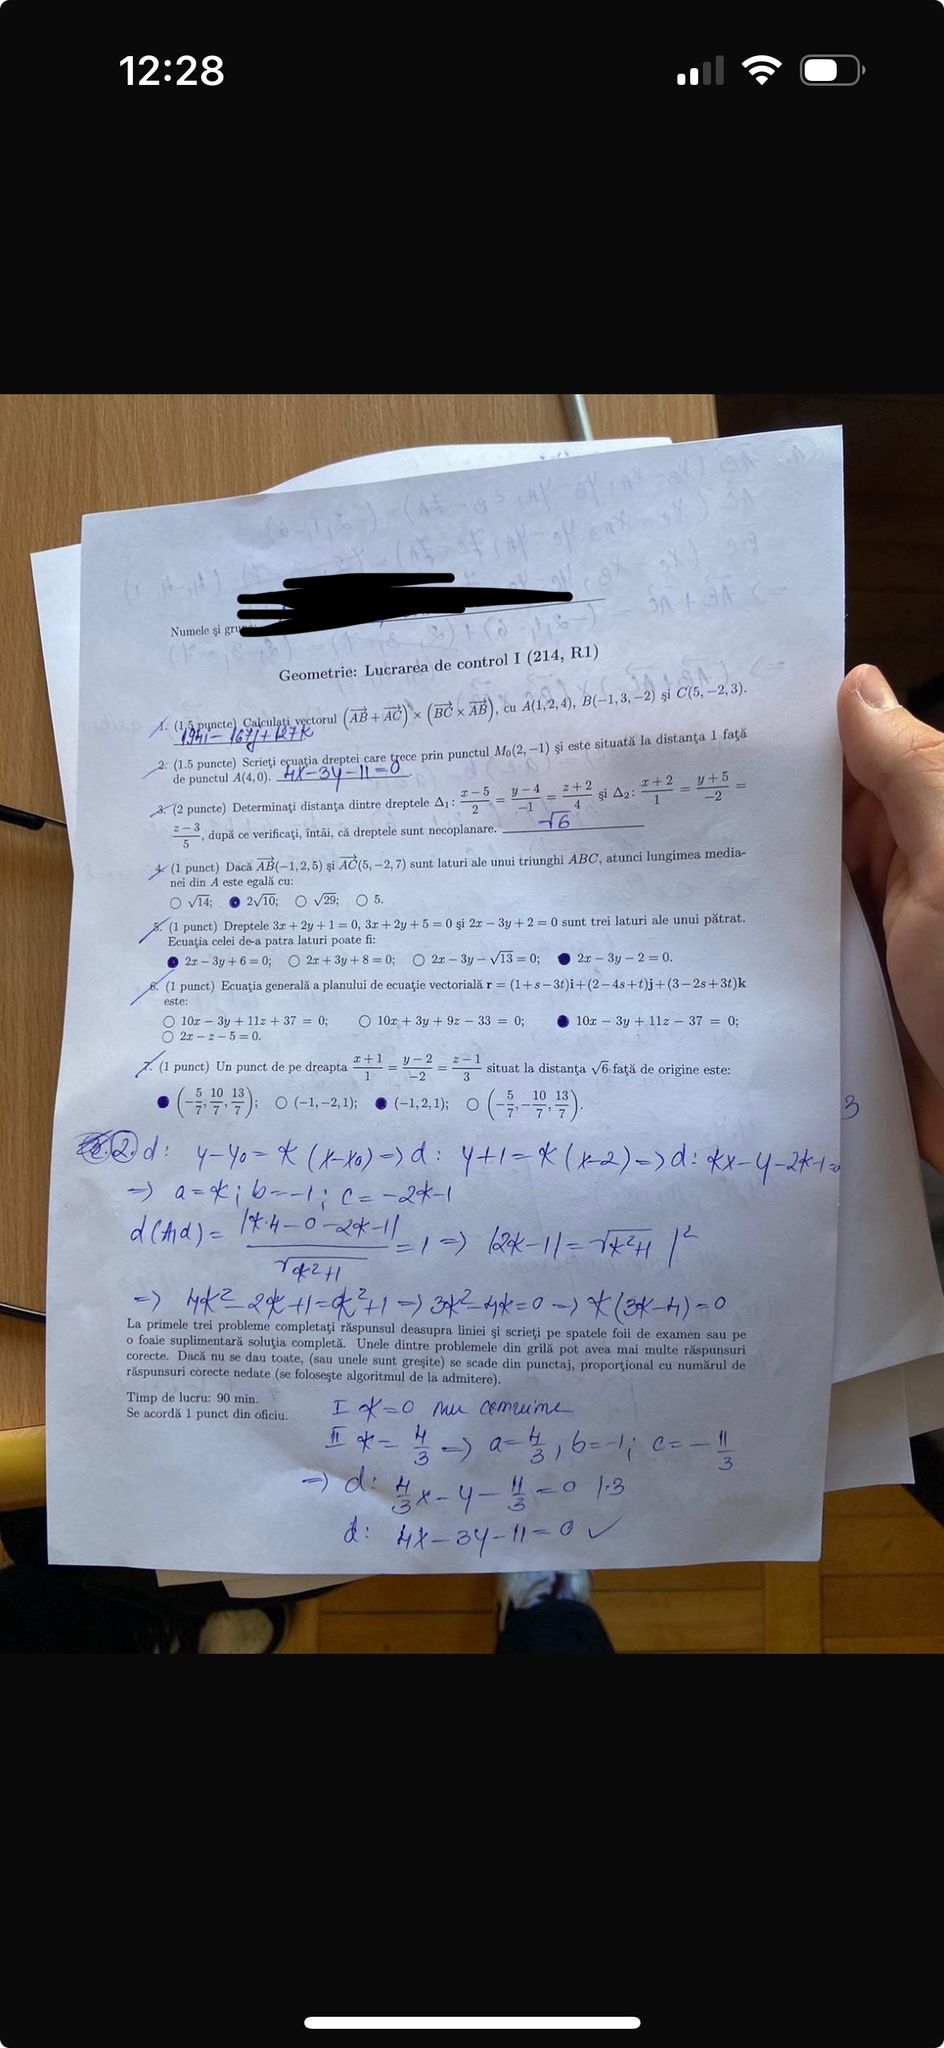 12:28
Numele și
Geometrie: Lucrarea de control I (214, R1)
1. (1.5 puncte) Calculați vectorul (AB + AC) × (BC × AB), cu A(1, 2, 4), B(−1, 3, −2) și C(5, −2, 3).
194i − 167j + 127k
2. (1.5 puncte) Scrieți ecuația dreptei care trece prin punctul M₀(2, −1) și este situată la distanța 1 față
de punctul A(4, 0). 4x − 3y − 11 = 0
3. (2 puncte) Determinați distanța dintre dreptele Δ₁ : (x − 5)/2 = (y − 4)/−1 = (z + 2)/4 și Δ₂ : (x + 2)/1 = (y + 5)/−2 =
(z − 3)/5, după ce verificați, întâi, că dreptele sunt necoplanare. √6
4. (1 punct) Dacă AB(−1, 2, 5) și AC(5, −2, 7) sunt laturi ale unui triunghi ABC, atunci lungimea media-
nei din A este egală cu:
○ √14; ● 2√10; ○ √29; ○ 5.
5. (1 punct) Dreptele 3x + 2y + 1 = 0, 3x + 2y + 5 = 0 și 2x − 3y + 2 = 0 sunt trei laturi ale unui pătrat.
Ecuația celei de-a patra laturi poate fi:
● 2x − 3y + 6 = 0; ○ 2x + 3y + 8 = 0; ○ 2x − 3y − √13 = 0; ● 2x − 3y − 2 = 0.
6. (1 punct) Ecuația generală a planului de ecuație vectorială r = (1+s−3t)i+(2−4s+t)j+(3−2s+3t)k
este:
○ 10x − 3y + 11z + 37 = 0; ○ 10x + 3y + 9z − 33 = 0; ● 10x − 3y + 11z − 37 = 0;
○ 2x − z − 5 = 0.
7. (1 punct) Un punct de pe dreapta (x + 1)/1 = (y − 2)/−2 = (z − 1)/3 situat la distanța √6 față de origine este:
● (−5/7, 10/7, 13/7); ○ (−1, −2, 1); ● (−1, 2, 1); ○ (−5/7, −10/7, 13/7).
3
2. d: y − y₀ = k (x − x₀) => d: y + 1 = k (x − 2) => d: kx − y − 2k − 1 = 0
=> a = k; b = −1; c = −2k − 1
d(A,d) = |k·4 − 0 − 2k − 1| / √(k² + 1) = 1 => |2k − 1| = √(k² + 1) |²
=> 4k² − 2k + 1 = k² + 1 => 3k² − 4k = 0 => k(3k − 4) = 0
La primele trei probleme completați răspunsul deasupra liniei și scrieți pe spatele foii de examen sau pe
o foaie suplimentară soluția completă. Unele dintre problemele din grilă pot avea mai multe răspunsuri
corecte. Dacă nu se dau toate, (sau unele sunt greșite) se scade din punctaj, proporțional cu numărul de
răspunsuri corecte nedate (se folosește algoritmul de la admitere).
Timp de lucru: 90 min.
Se acordă 1 punct din oficiu.
I k = 0 nu convine
II k = 4/3 => a = 4/3, b = −1; c = −11/3
=> d: 4/3 x − y − 11/3 = 0 |·3
d: 4x − 3y − 11 = 0 ✓